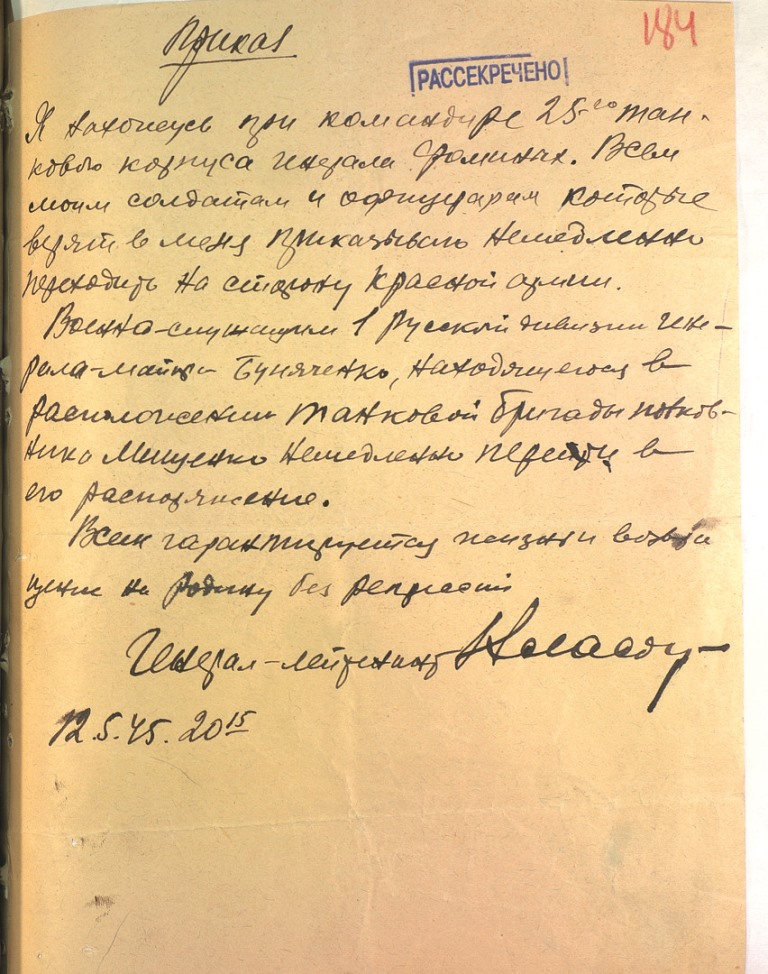 Приказ
184
РАССЕКРЕЧЕНО
Я нахожусь при командире 25-го тан-
кового корпуса генерала Фоминых. Всем
моим солдатам и офицерам которые
верят в меня приказываю немедленно
переходить на сторону Красной армии.
Военно-служащим 1 Русской дивизии ген-
рала-майора Буняченко, находящегося в
расположении танковой бригады полков-
ника Мищенко немедленно перейти в
его распоряжение.
Всем гарантируется жизнь и возвра
щение на Родину без репрессий
Генерал-лейтенант Власов
12.5.45. 20 15